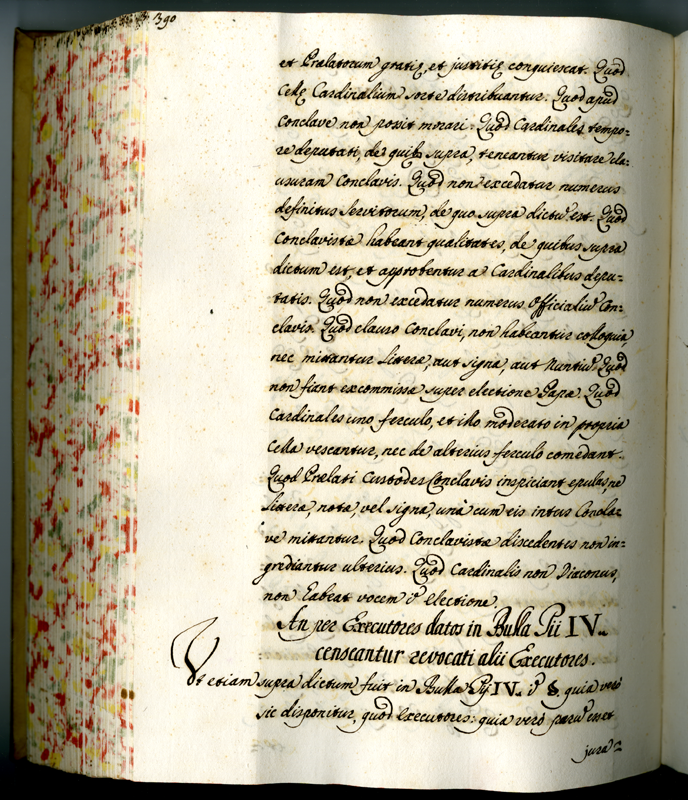 390
et Prælatorum gratię, et justitię conquiescat. Quod
Cellę Cardinalium sorte distribuantur. Quod apud
Conclave non possit morari. Quod Cardinales tempo=
re deputati, de quib9 supra, teneantur visitare cla=
usuram Conclavis. Quod non excedatur numerus
definitus servitorum, de quo supra dictũ est. Quod
Conclavistæ habeant qualitates, de quibus supra
dictum est, et approbentur a Cardinalibus depu=
tatis. Quod non excedatur numerus Officialiũ Con=
clavis. Quod clauso Conclavi, non habeantur colloquia,
nec mittantur litteræ, aut signa, aut Nuntius. Quod
non fiant excommissa super electione Papæ. Quod
Cardinales uno ferculo, et illo moderato in propria
Cella vescantur, nec de alterius ferculo comedant.
Quod Prælati Custodes Conclavis inspiciant epulas, ne
litteræ, notæ, vel signa, unà cum eis intus Concla=
ve mittantur. Quod Conclavistæ discedentes non in=
grediantur ulterius. Quod Cardinalis non Diaconus,
non habeat vocem ĩ electione.
An per Executores datos in Bulla Pii IV.
censeantur revocati alii Executores.
Ut etiam supra dictum fuit in Bulla Pij IV. ĩ §. quia verò
sic disponitur, quod Executores: quia verò parũ esset
jura